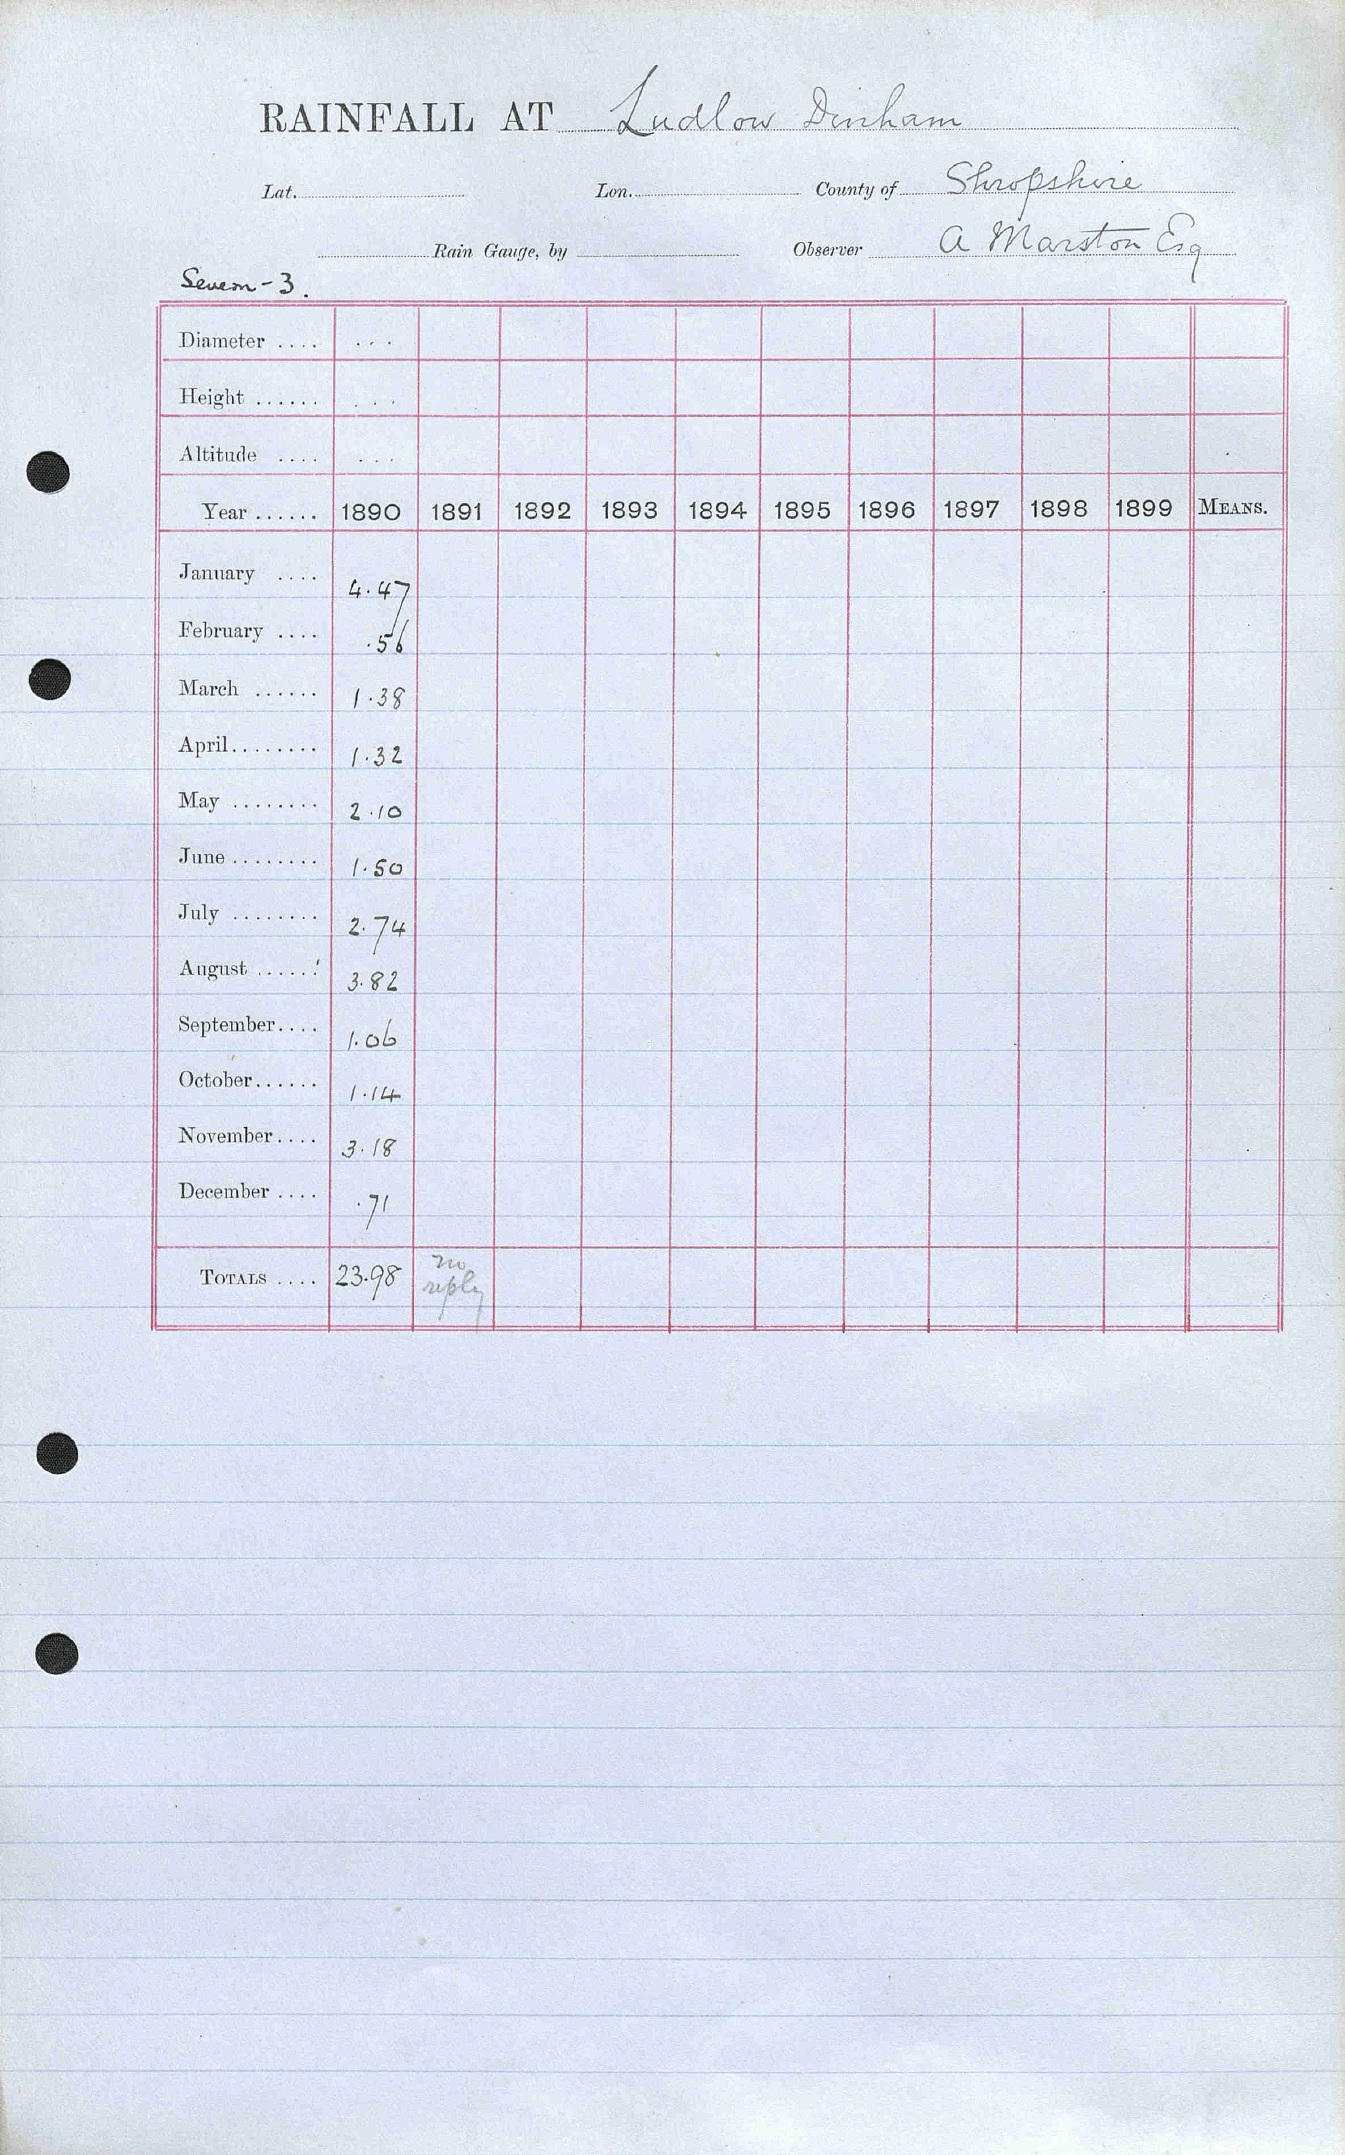 RAINFALL AT Ludlow Dinham
Lat. Lon. County of Shropshire
Rain Gauge, by Observer A Marston Esq
Severn-3.
Diameter .... ...
Height ...... ...
Altitude .... ...
Year ...... 1890 1891 1892 1893 1894 1895 1896 1897 1898 1899 MEANS.
January .... 4.47
February .... .56
March ...... 1.38
April........ 1.32
May ........ 2.10
June........ 1.50
July ........ 2.74
August ...... 3.82
September.... 1.06
October...... 1.14
November.... 3.18
December .... .71
TOTALS .... 23.98 no
reply